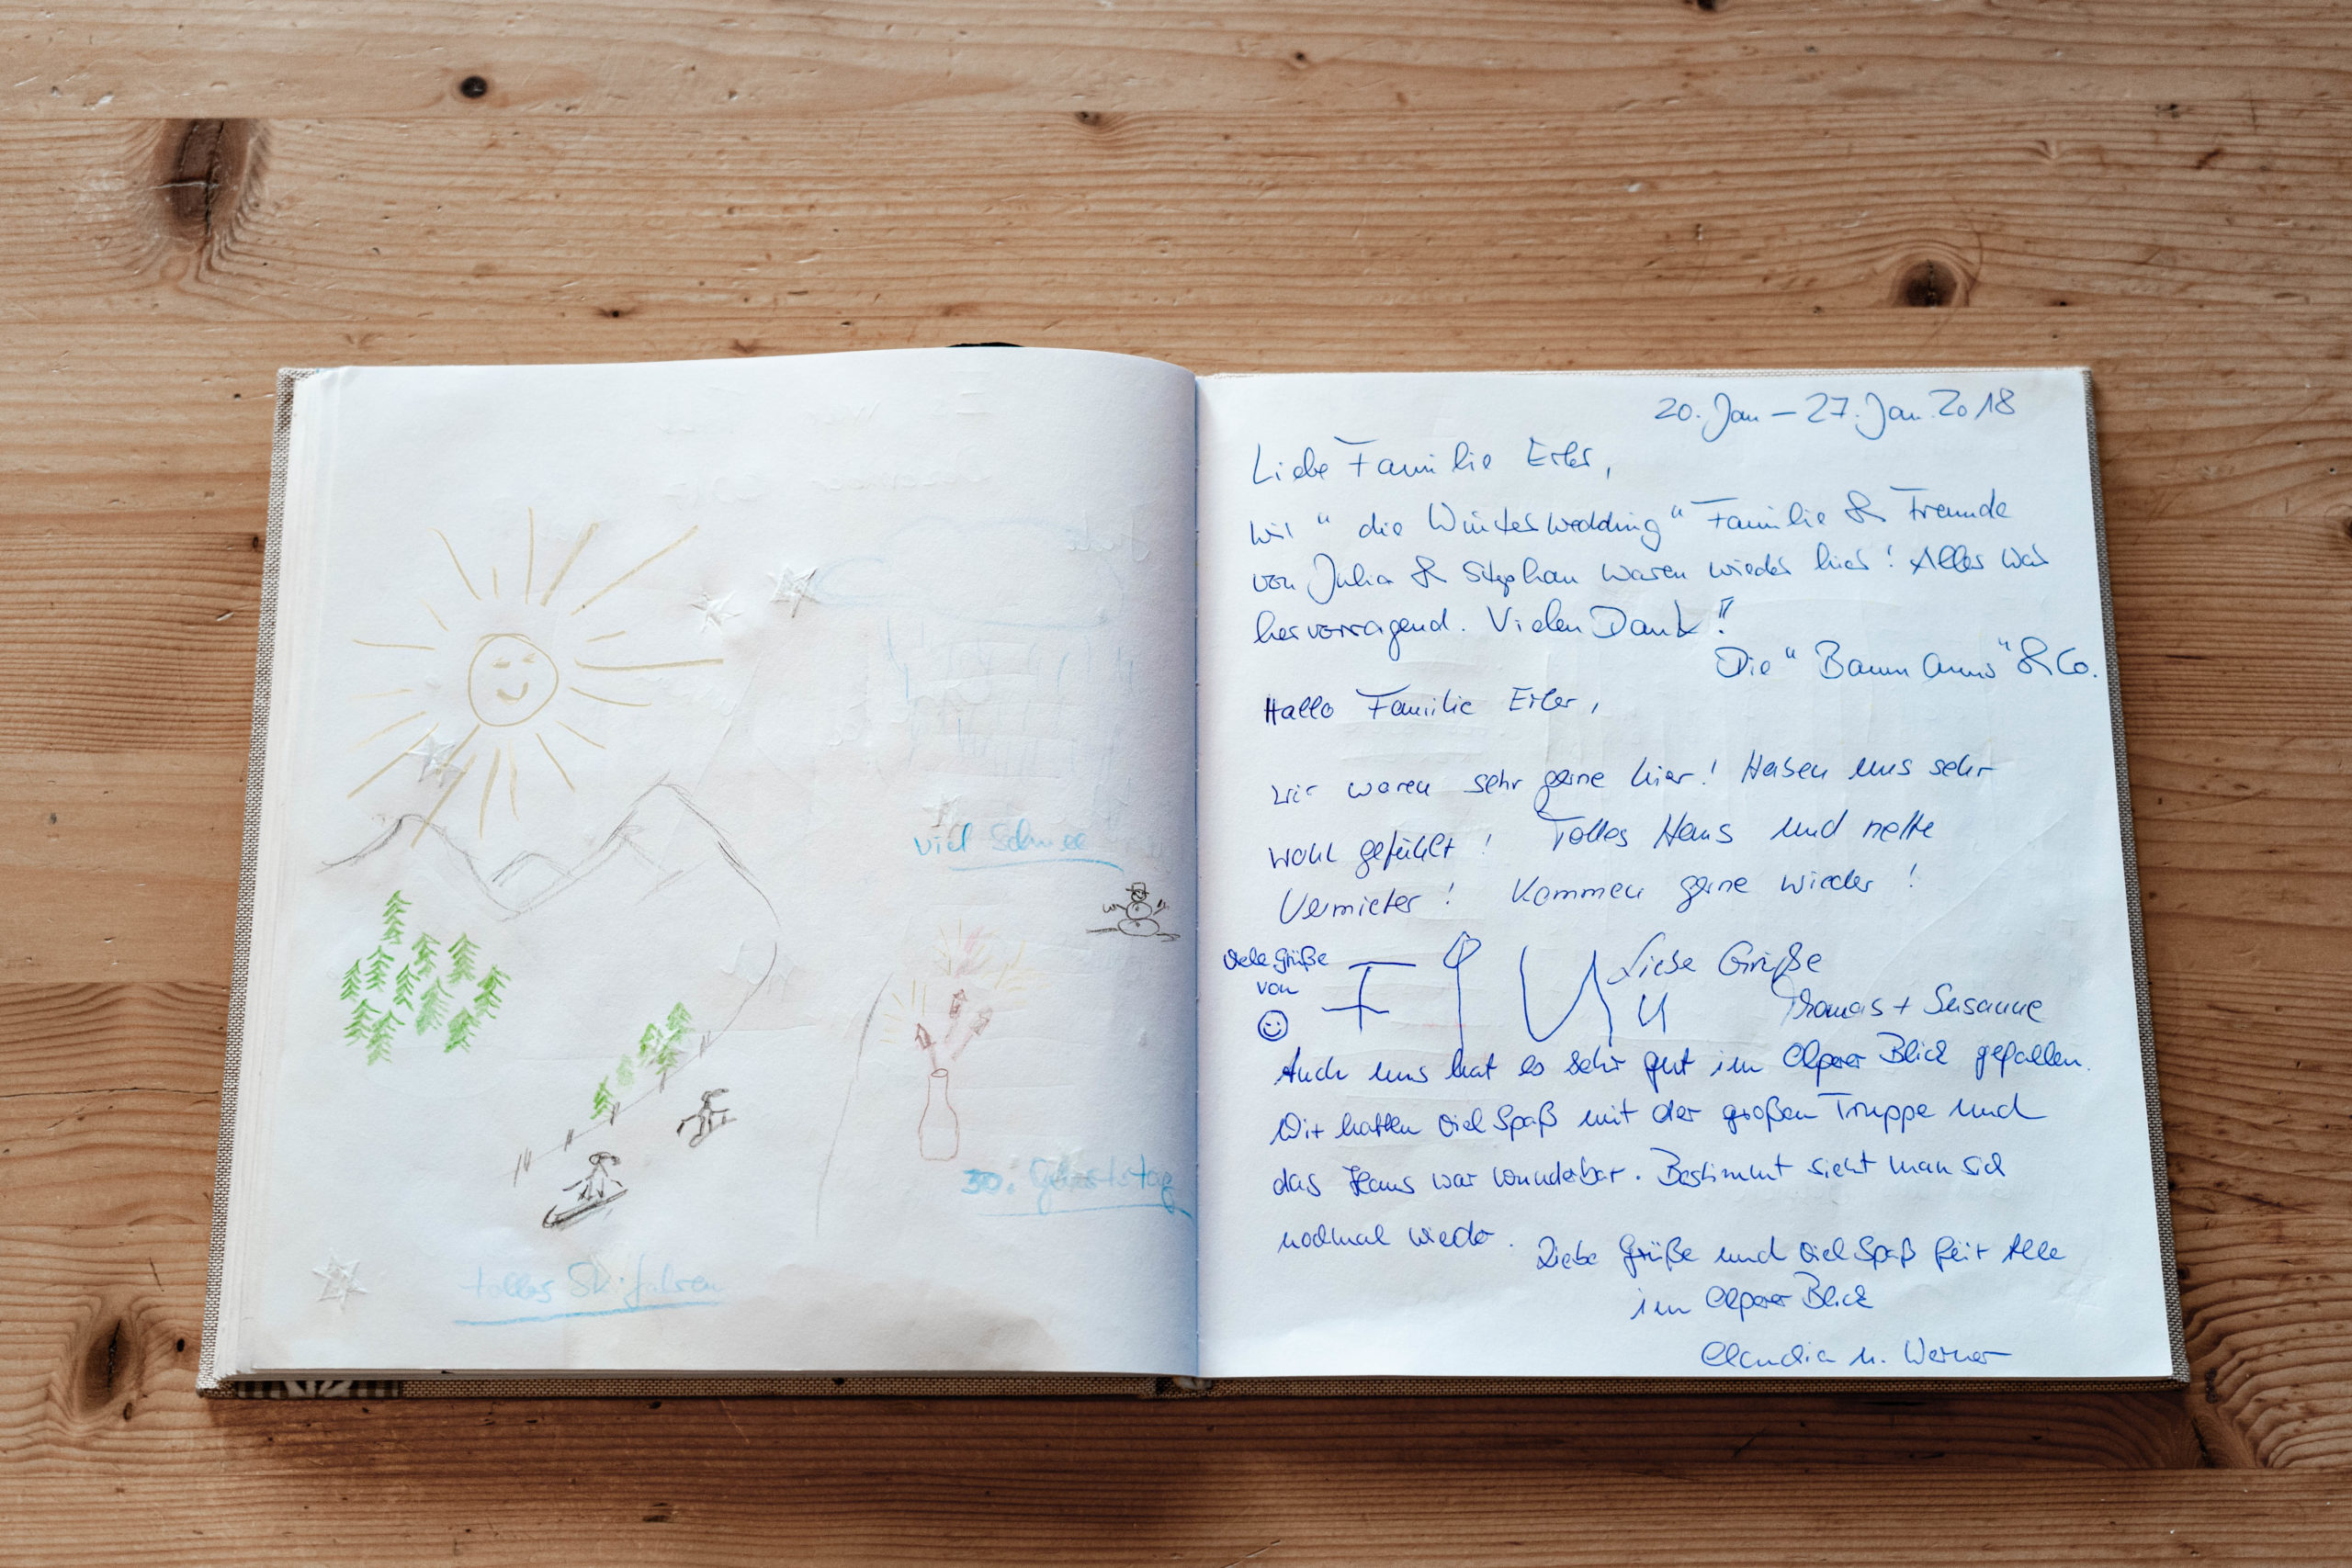 viel Schnee
30. Geburtstag
tolles Skifahren
20. Jan – 27. Jan. 2018
Liebe Familie Erler,
wir "die Winterwedding" Familie & Freunde
von Julia & Stephan waren wieder hier! Alles war
hervorragend. Vielen Dank!!
Die "Baumanns" & Co.
Hallo Familie Erler,
wir waren sehr gerne hier! Haben uns sehr
wohl gefühlt! Tolles Haus und nette
Vermieter! Kommen gerne wieder!
Viele Grüße
von
Liebe Grüße
Thomas + Susanne
Auch uns hat es sehr gut im Olperer Blick gefallen.
Wir hatten viel Spaß mit der großen Truppe und
das Haus war wunderbar. Bestimmt sieht man sich
nochmal wieder.
Liebe Grüße und viel Spaß für Alle
im Olperer Blick
Claudia u. Werner